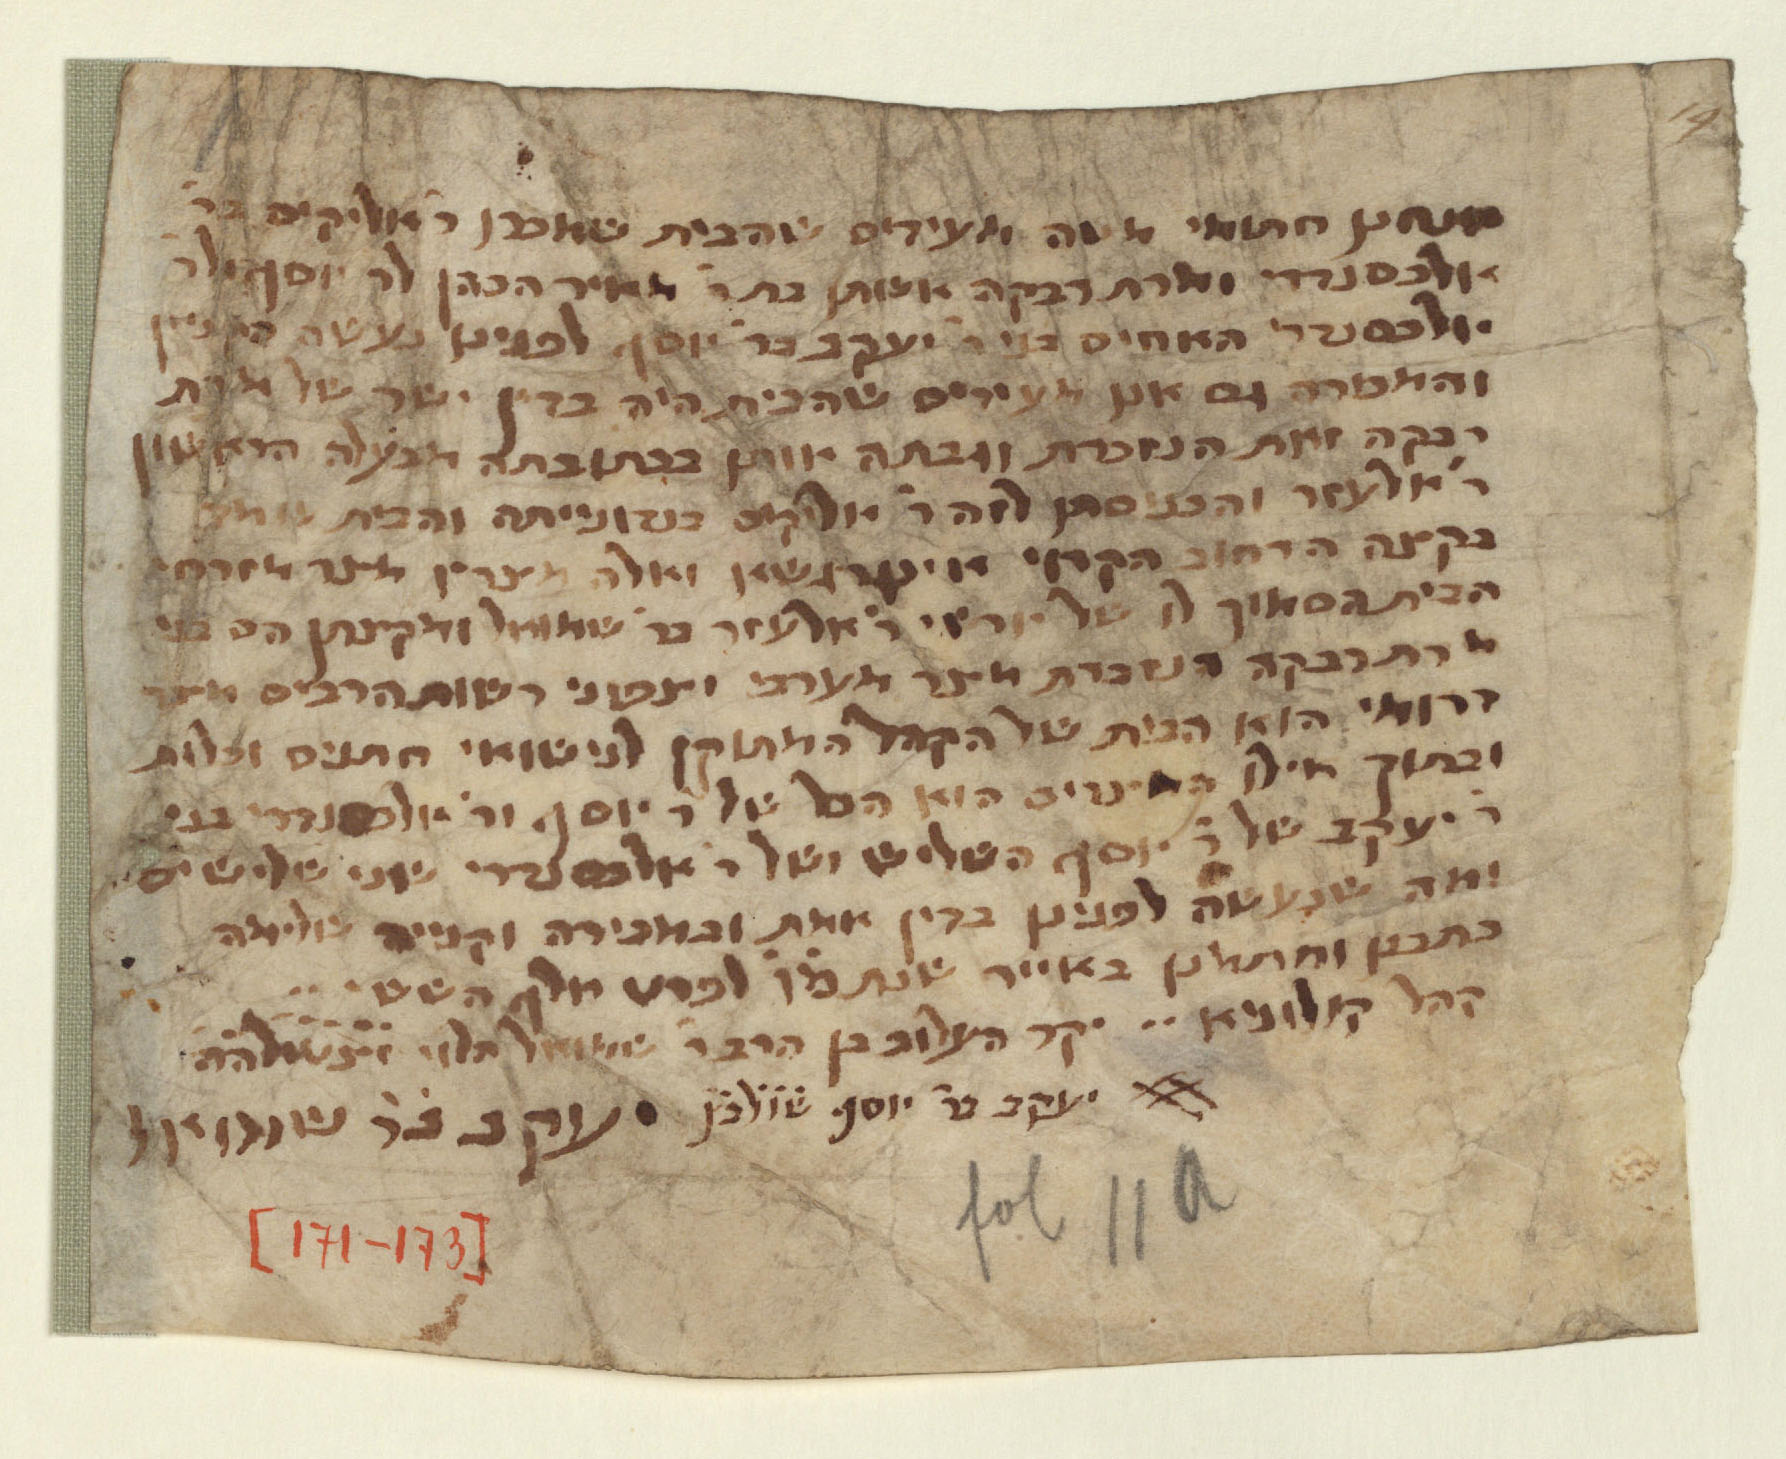 אנחנו חתומי מטה מעידים שהבית שמכרו ר' אליקים בר'
אלכסנדרי ומרת רבקה אשתו בת ר' מאיר הכהן לר' יוסף ולר'
אלכסנדר האחים בני ר' יעקב בר' יוסף לפנינו נעשה הקניין
והמכירה גם אנו מעידים שהבית היה בדין ישר של מרת
רבקה זאת הנזכרת וגבתה אותו בכתובתה מבעלה הראשון
ר' אלעזר והכניסתו לזה ר' אליקים בנדונייתה והבית עומד
בקצה הרחוב הקרוי ואלה מצריו מיצר מזרחי
הבית הסמוך לו של יורשי ר' אלעזר בר' שמואל ומקצתו הם בני
מרת רבקה הנזכרת מיצר מערבי וצפוני רשות הרבים מיצר
דרומי הוא הבית של הקהל המתוקן לנישואי חתנים וכלות
ובתוך אילו המיצרים הוא הכל של ר' יוסף ור' אלכסנדרי בני
ר' יעקב של ר' יוסף השליש ושל ר' אלכסנדרי שני שלישים
ומה שנעשה לפנינו בדין אמת ובמכירה וקנייה שלימה
כתבנו וחתמנו באייר שנת לפרט אלף הששי
קהל קולוניא יקר העלוב בן הרב ר' שמואל הלוי
יעקב בר' יוסף יעקב בר' שמואל
fol 11 a
[171-173]
19